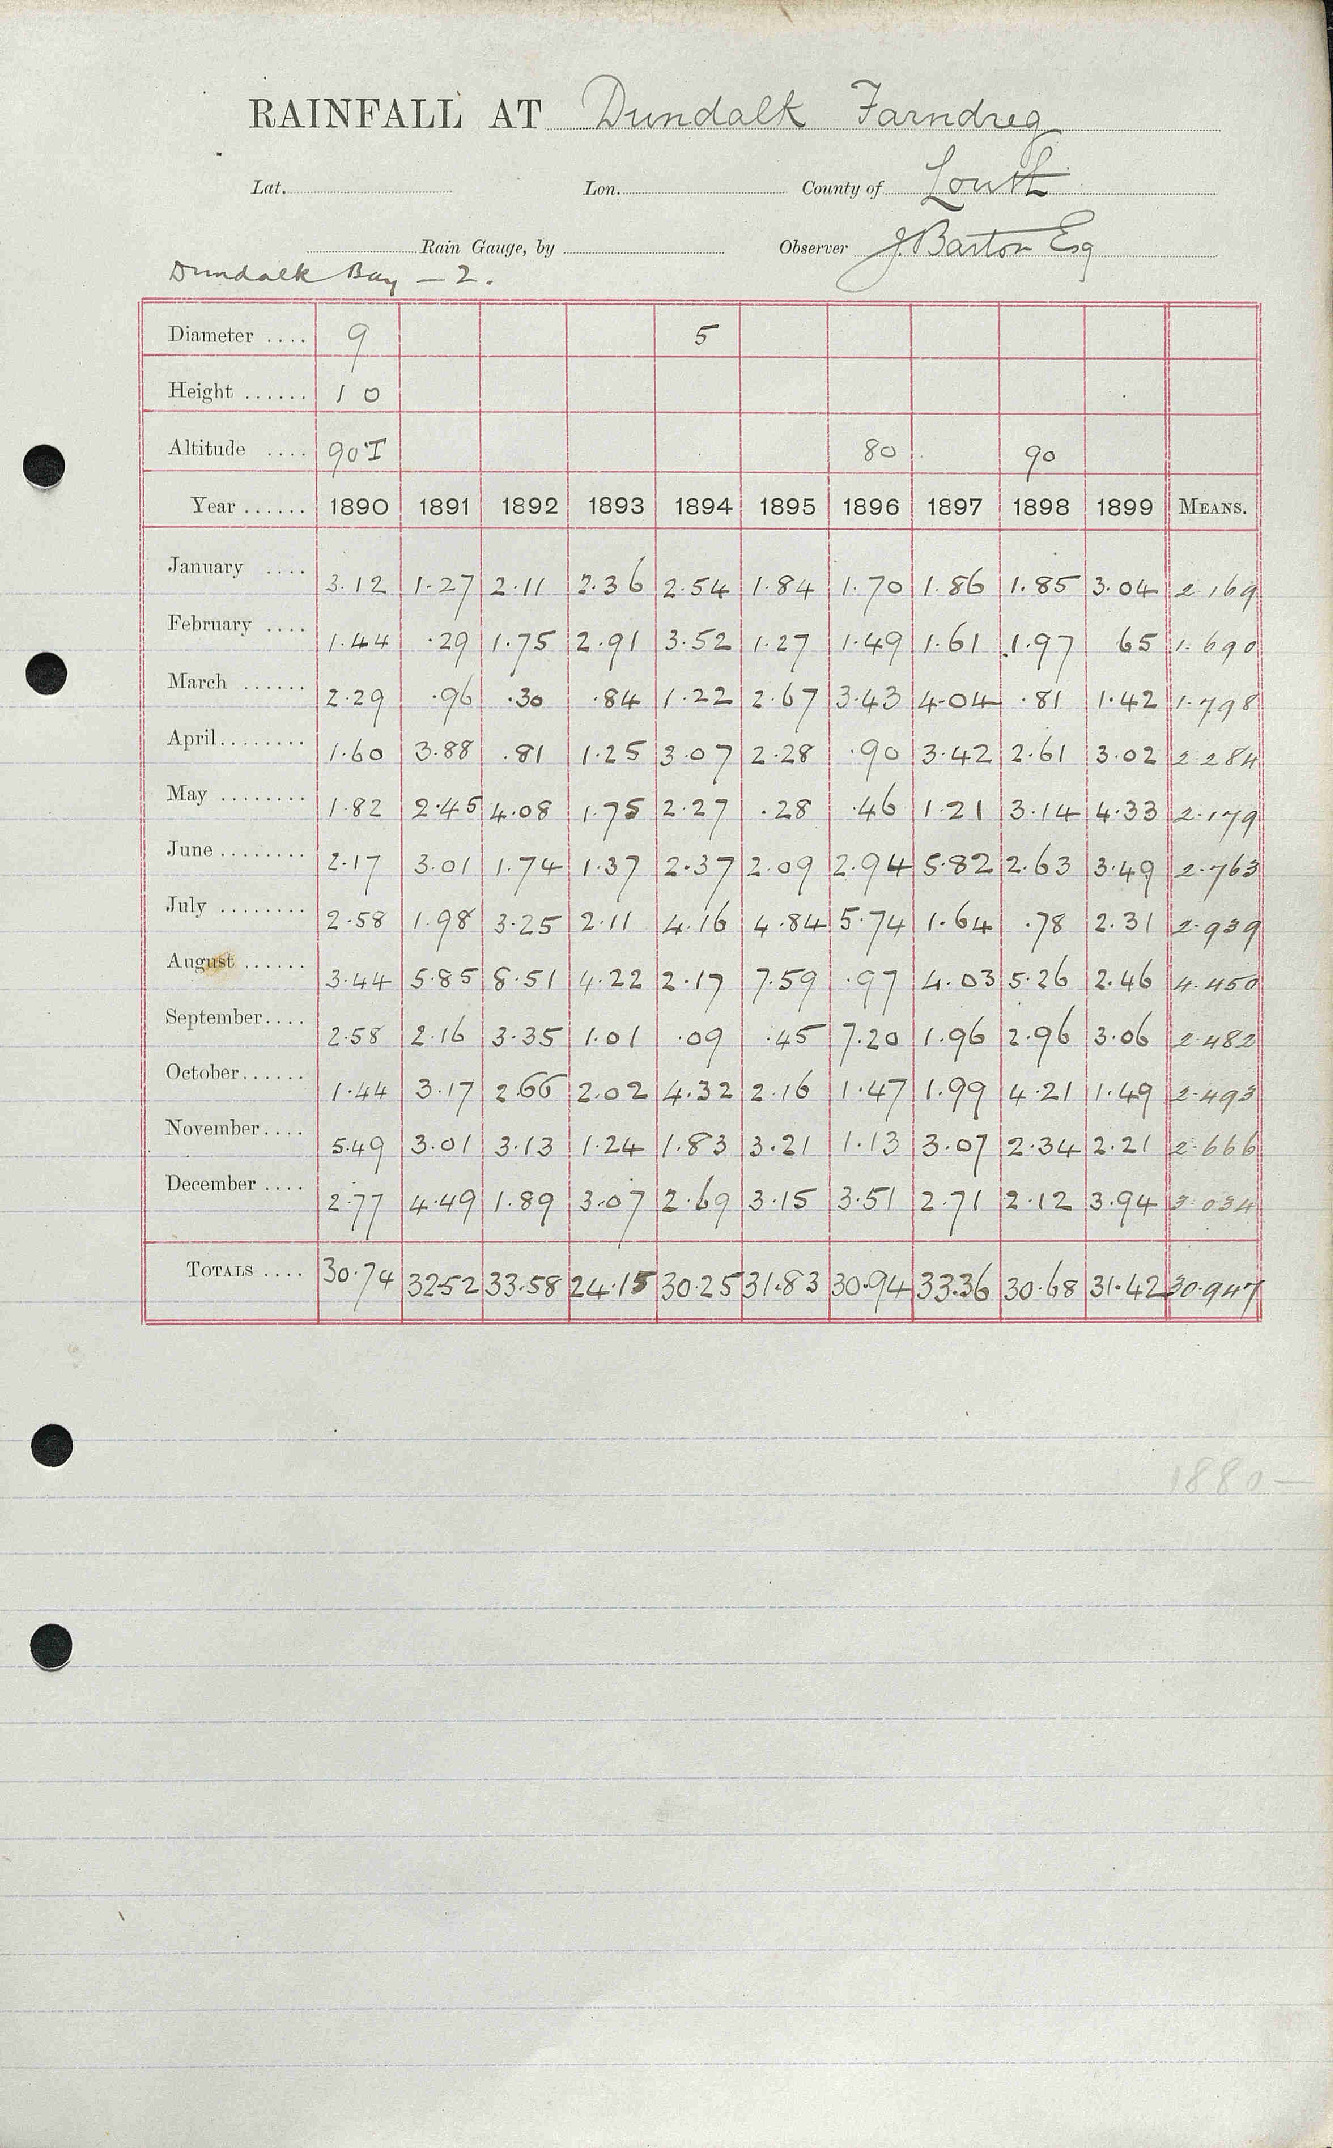 RAINFALL AT Dundalk Farndreg
Lat. Lon. County of Louth
Rain Gauge, by Observer J. Barton Esq
Dundalk Bay – 2.
Diameter .... 9 5
Height ...... 1 0
Altitude .... 90 T 80 90
Year ...... 1890 1891 1892 1893 1894 1895 1896 1897 1898 1899 MEANS.
January .... 3.12 1.27 2.11 2.36 2.54 1.84 1.70 1.86 1.85 3.04 2.169
February .... 1.44 .29 1.75 2.91 3.52 1.27 1.49 1.61 1.97 65 1.690
March ...... 2.29 .96 .30 .84 1.22 2.67 3.43 4.04 .81 1.42 1.798
April ........ 1.60 3.88 .81 1.25 3.07 2.28 .90 3.42 2.61 3.02 2.284
May ........ 1.82 2.45 4.08 1.75 2.27 .28 .46 1.21 3.14 4.33 2.179
June ........ 2.17 3.01 1.74 1.37 2.37 2.09 2.94 5.82 2.63 3.49 2.763
July ........ 2.58 1.98 3.25 2.11 4.16 4.84 5.74 1.64 .78 2.31 2.939
August ...... 3.44 5.85 8.51 4.22 2.17 7.59 .97 4.03 5.26 2.46 4.450
September.... 2.58 2.16 3.35 1.01 .09 .45 7.20 1.96 2.96 3.06 2.482
October...... 1.44 3.17 2.66 2.02 4.32 2.16 1.47 1.99 4.21 1.49 2.493
November.... 5.49 3.01 3.13 1.24 1.83 3.21 1.13 3.07 2.34 2.21 2.666
December .... 2.77 4.49 1.89 3.07 2.69 3.15 3.51 2.71 2.12 3.94 3.034
TOTALS .... 30.74 32.52 33.58 24.15 30.25 31.83 30.94 33.36 30.68 31.42 30.947
1880 –